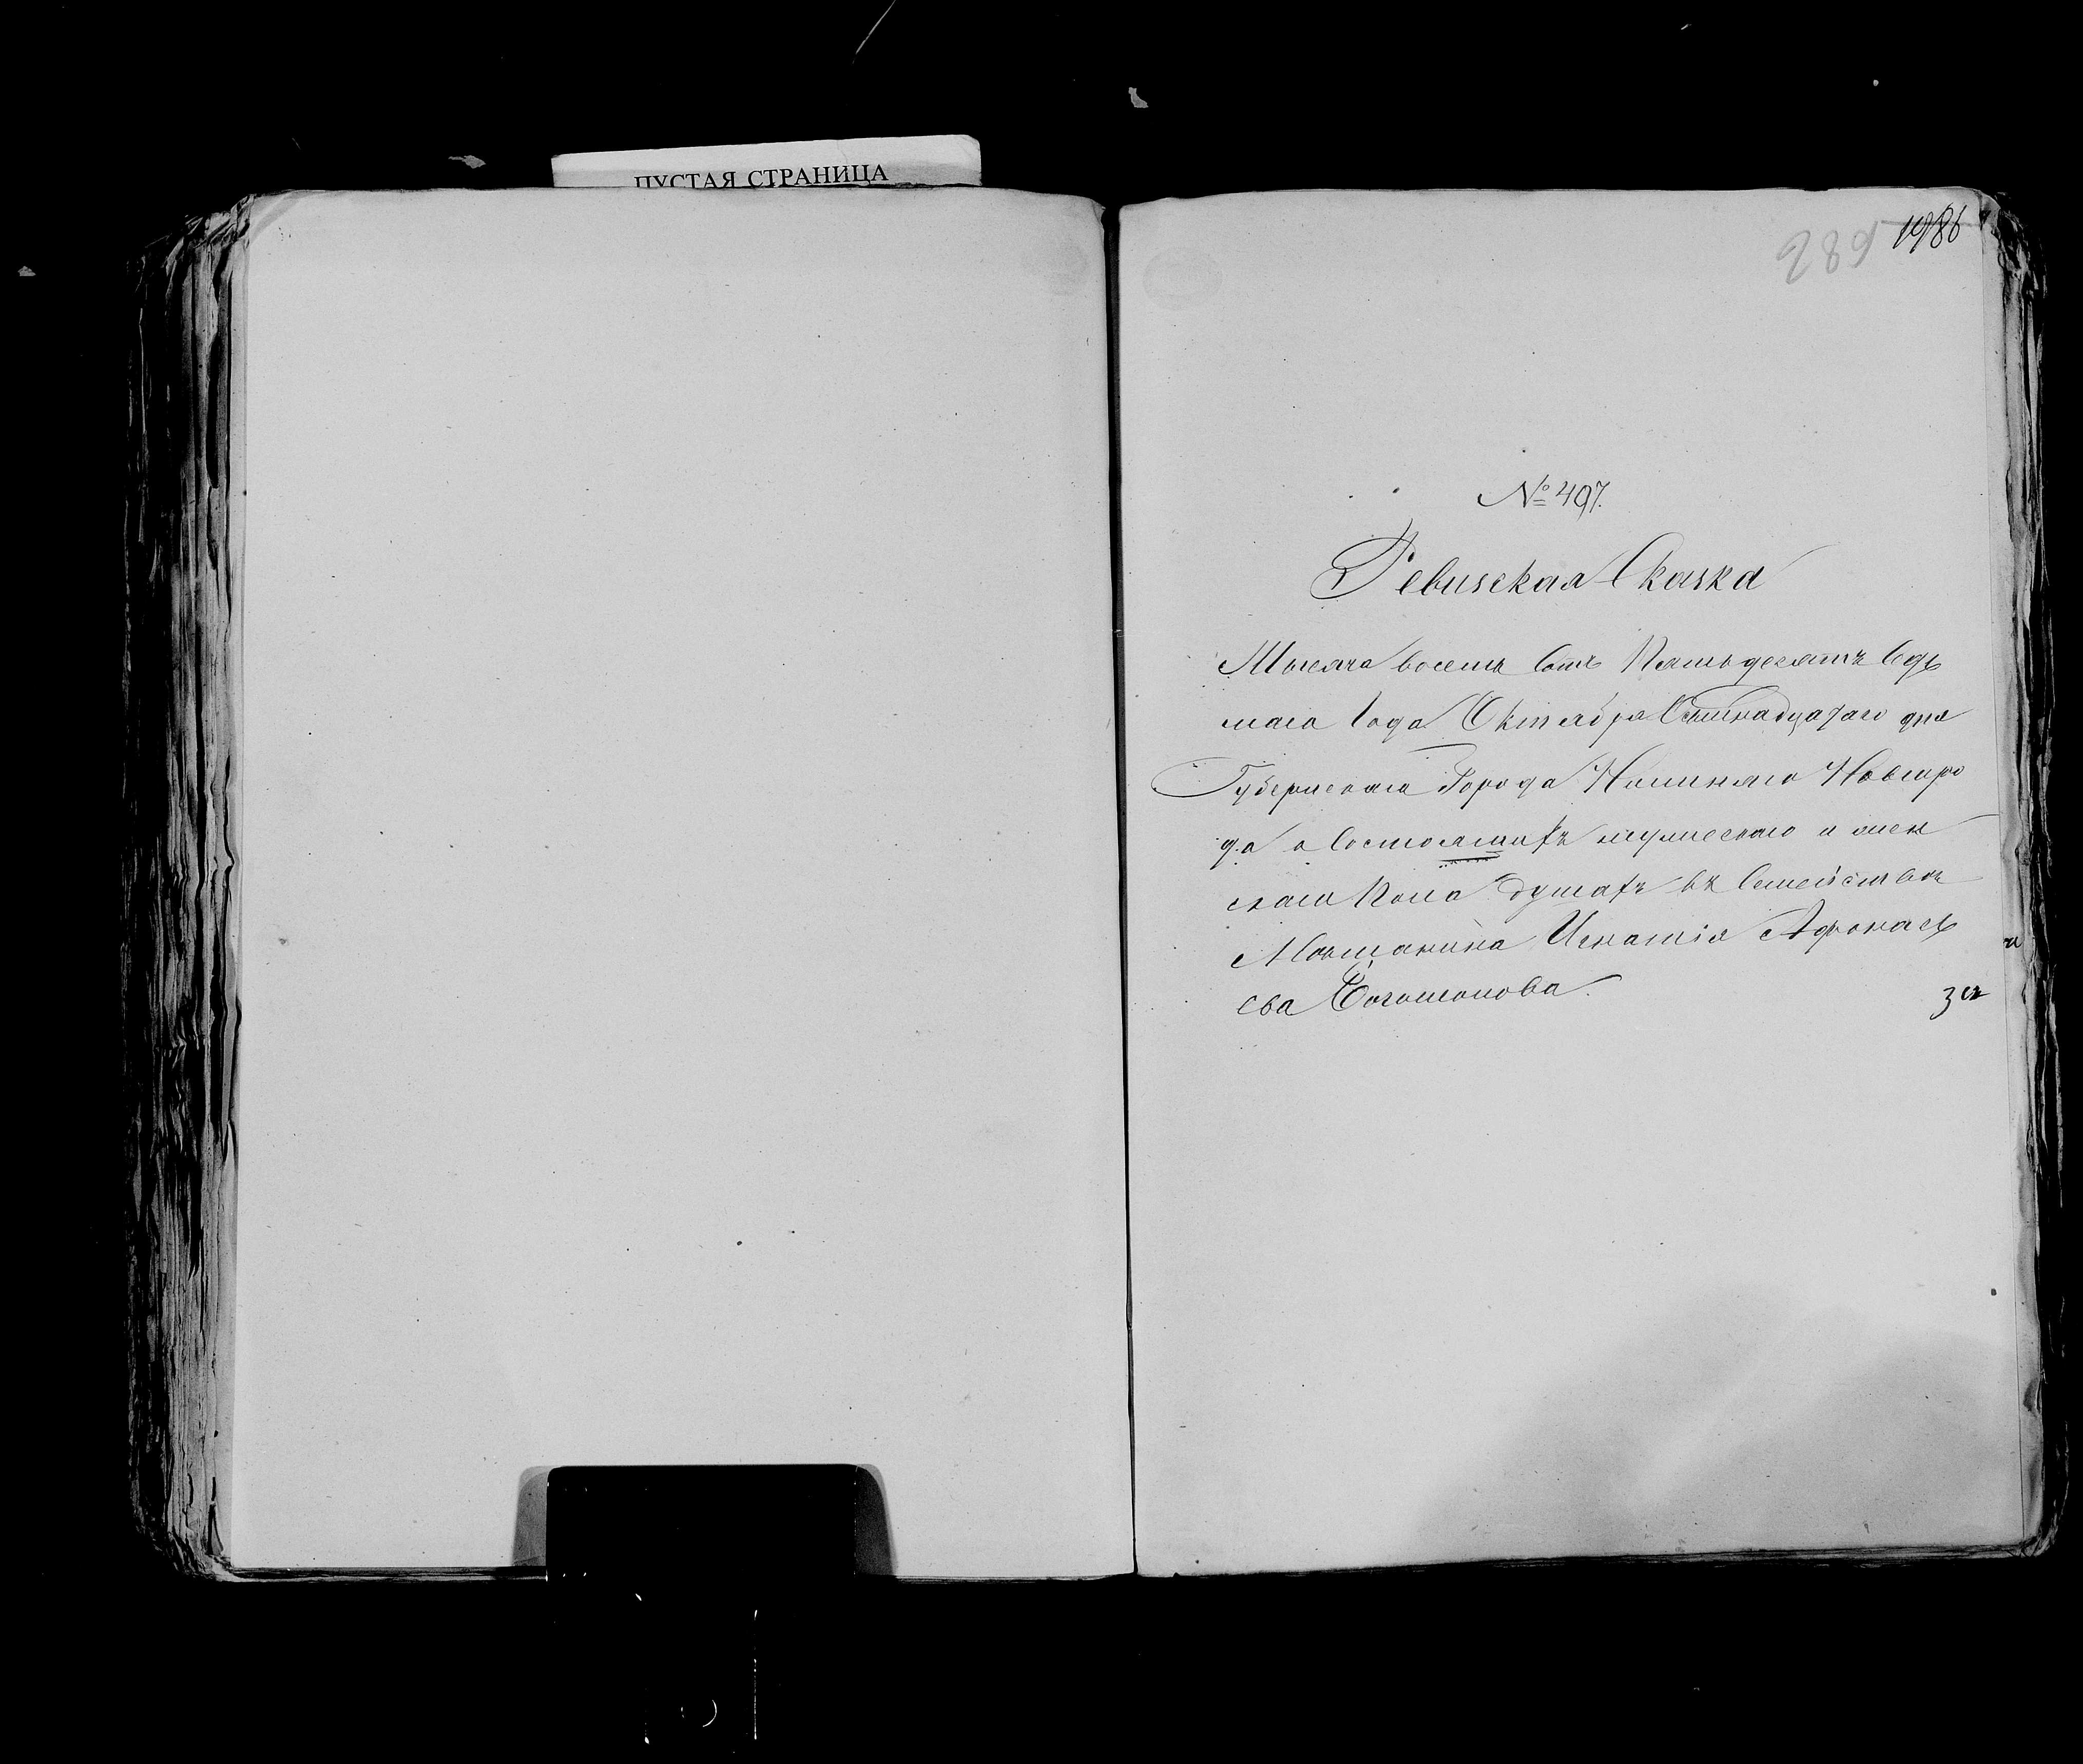 ПУСТАЯ СТРАНИЦА
289 1986
№ 497.
Ревизская Сказка
Тысяча восемь сотъ Пятьдесятъ Седь
маго Года Октября Осмнадцатаго дня
Губернскаго Города Нижняго Новгоро
да о Состоящихъ мужескаго и жен
скаго Пола душахъ въ Семействѣ
Мѣщанина Игнатія Афонасье
ева
за